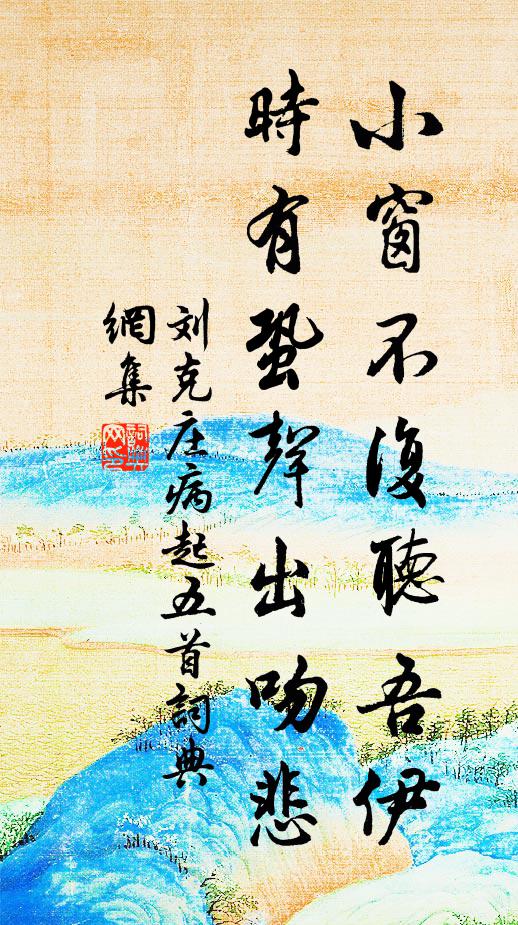 小窗不復聽吾伊
時有蛩聲出吻悲
刘克庄病起五首詞典
網集